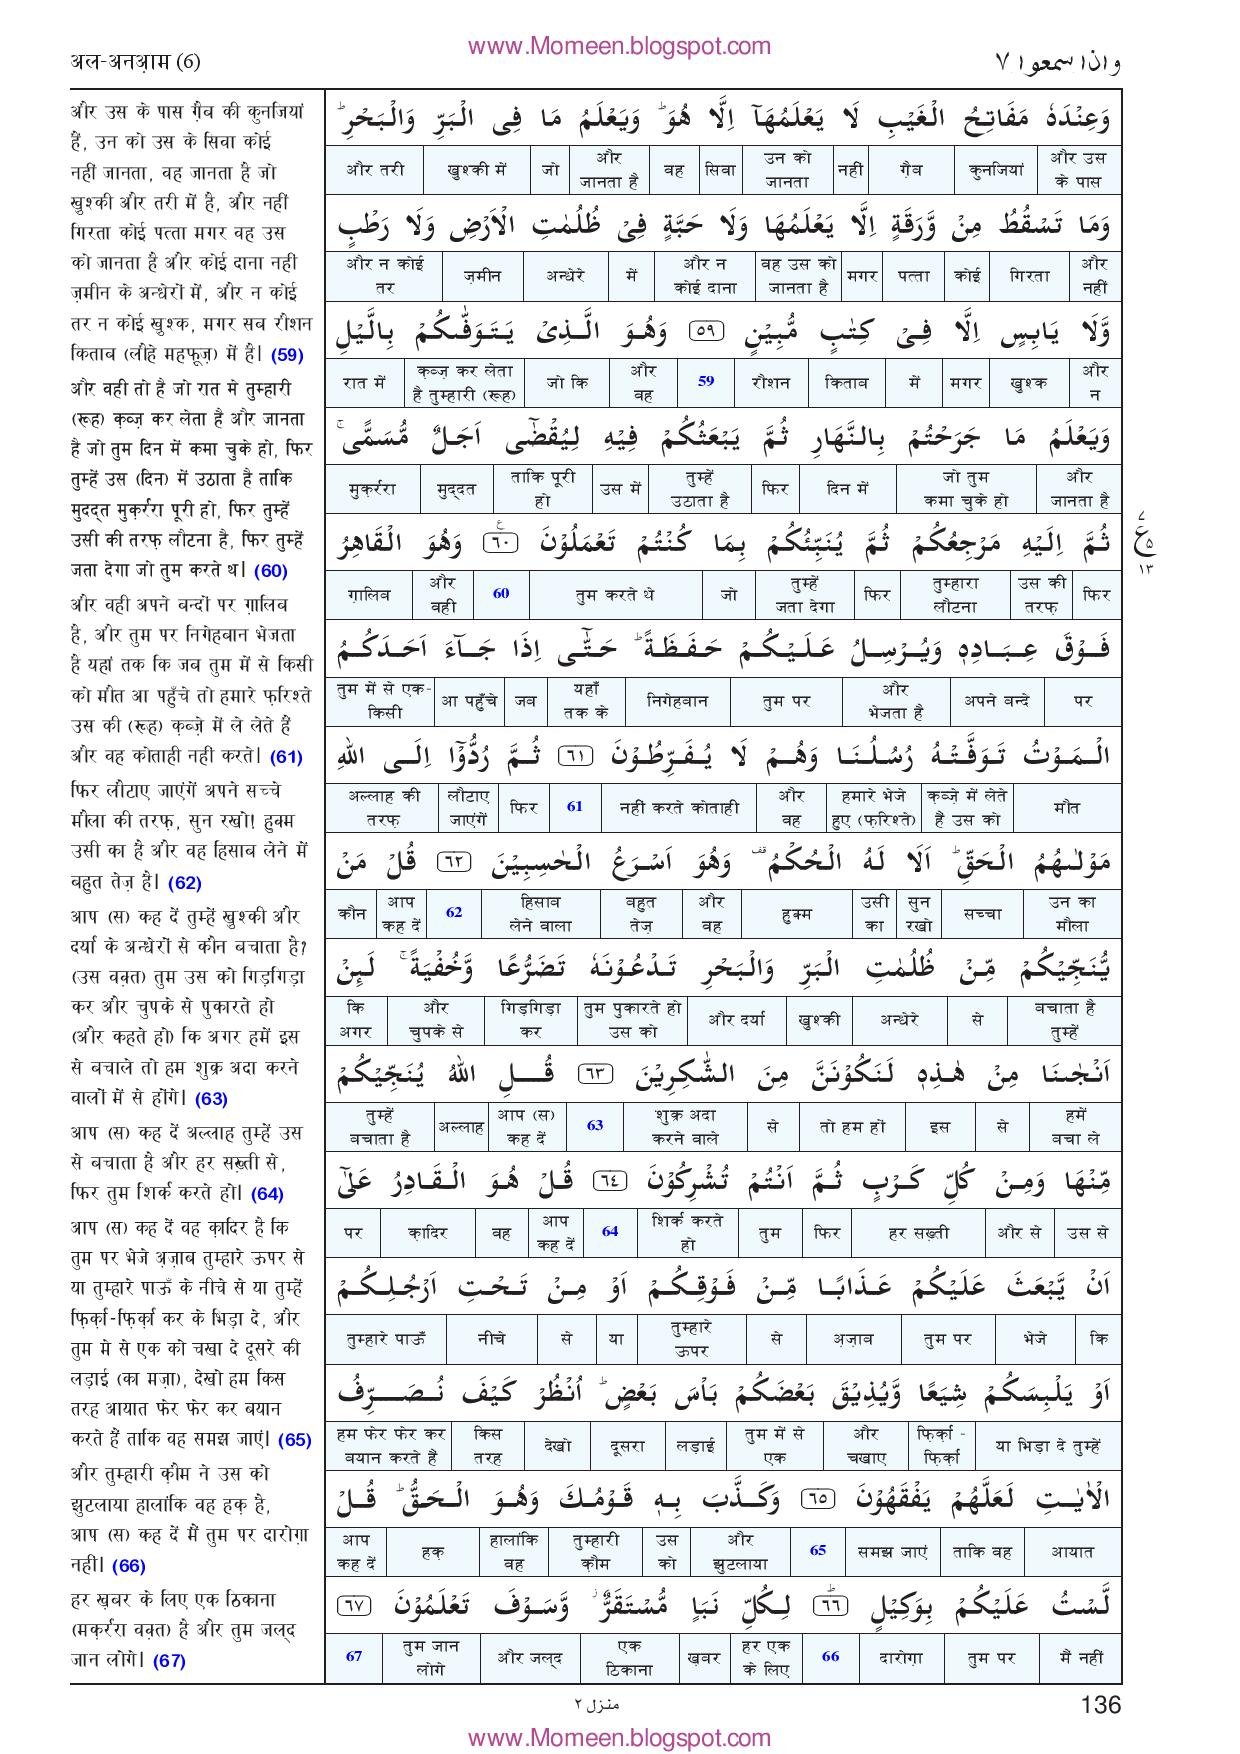 www.Momeen.blogspot.com
अल-अनआ़म (6)
واذا سمعوا ٧
और उस के पास ग़ैब की कुनजियां
हैं, उन को उस के सिवा कोई
नहीं जानता, वह जानता है जो
ख़ुश्की और तरी में है, और नहीं
गिरता कोई पत्ता मगर वह उस
को जानता है और कोई दाना नहीं
ज़मीन के अन्धेरों में, और न कोई
तर न कोई ख़ुश्क, मगर सब रौशन
किताब (लौहे महफ़ूज़) में है। (59)
और वही तो है जो रात में तुम्हारी
(रूह) क़ब्ज़ कर लेता है और जानता
है जो तुम दिन में कमा चुके हो, फिर
तुम्हें उस (दिन) में उठाता है ताकि
मुद्दत मुक़र्ररा पूरी हो, फिर तुम्हें
उसी की तरफ़ लौटना है, फिर तुम्हें
जता देगा जो तुम करते थे। (60)
और वही अपने बन्दों पर ग़ालिब
है, और तुम पर निगेहबान भेजता
है यहां तक कि जब तुम में से किसी
को मौत आ पहुँचे तो हमारे फ़रिश्ते
उस की (रूह) क़ब्ज़े में ले लेते हैं
और वह कोताही नहीं करते। (61)
फिर लौटाए जाएंगें अपने सच्चे
मौला की तरफ़, सुन रखो! हुक्म
उसी का है और वह हिसाब लेने में
बहुत तेज़ है। (62)
आप (स) कह दें तुम्हें ख़ुश्की और
दर्या के अन्धेरों से कौन बचाता है?
(उस वक़्त) तुम उस को गिड़गिड़ा
कर और चुपके से पुकारते हो
(और कहते हो) कि अगर हमें इस
से बचाले तो हम शुक्र अदा करने
वालों में से होंगे। (63)
आप (स) कह दें अल्लाह तुम्हें उस
से बचाता है और हर सख़्ती से,
फिर तुम शिर्क करते हो। (64)
आप (स) कह दें वह क़ादिर है कि
तुम पर भेजे अज़ाब तुम्हारे ऊपर से
या तुम्हारे पाऊँ के नीचे से या तुम्हें
फ़िर्क़ा-फ़िर्क़ा कर के भिड़ा दे, और
तुम में से एक को चखा दे दूसरे की
लड़ाई (का मज़ा), देखो हम किस
तरह आयात फेर फेर कर बयान
करते हैं ताकि वह समझ जाएं। (65)
और तुम्हारी क़ौम ने उस को
झुटलाया हालांकि वह हक़ है,
आप (स) कह दें मैं तुम पर दारोग़ा
नहीं। (66)
हर ख़बर के लिए एक ठिकाना
(मक़र्ररा वक़्त) है और तुम जल्द
जान लोगे। (67)
وَعِنْدَهٗ مَفَاتِحُ الْغَيْبِ لَا يَعْلَمُهَآ اِلَّا هُوَ ؕ وَيَعْلَمُ مَا فِى الْبَرِّ وَالْبَحْرِ ؕ
और उस के पास कुनजियां ग़ैब नहीं उन को जानता सिवा वह और जानता है जो ख़ुश्की में और तरी
وَمَا تَسْقُطُ مِنْ وَّرَقَةٍ اِلَّا يَعْلَمُهَا وَلَا حَبَّةٍ فِىْ ظُلُمٰتِ الْاَرْضِ وَلَا رَطْبٍ
और नहीं गिरता कोई पत्ता मगर वह उस को जानता है और न कोई दाना में अन्धेरे ज़मीन और न कोई तर
وَّلَا يَابِسٍ اِلَّا فِىْ كِتٰبٍ مُّبِيْنٍ ﴿٥٩﴾ وَهُوَ الَّذِىْ يَتَوَفّٰىكُمْ بِالَّيْلِ
और न ख़ुश्क मगर में किताब रौशन 59 और वह जो कि क़ब्ज़ कर लेता है तुम्हारी (रूह) रात में
وَيَعْلَمُ مَا جَرَحْتُمْ بِالنَّهَارِ ثُمَّ يَبْعَثُكُمْ فِيْهِ لِيُقْضٰٓى اَجَلٌ مُّسَمًّى ۚ
और जानता है जो तुम कमा चुके हो दिन में फिर तुम्हें उठाता है उस में ताकि पूरी हो मुद्दत मुक़र्ररा
ثُمَّ اِلَيْهِ مَرْجِعُكُمْ ثُمَّ يُنَبِّئُكُمْ بِمَا كُنْتُمْ تَعْمَلُوْنَ ﴿٦٠﴾ ع وَهُوَ الْقَاهِرُ
٧ ع ٥ ١٣
फिर उस की तरफ़ तुम्हारा लौटना फिर तुम्हें जता देगा जो तुम करते थे 60 और वही ग़ालिब
فَوْقَ عِبَادِهٖ وَيُرْسِلُ عَلَيْكُمْ حَفَظَةً ؕ حَتّٰٓى اِذَا جَآءَ اَحَدَكُمُ
पर अपने बन्दे और भेजता है तुम पर निगेहबान यहाँ तक के जब आ पहुँचे तुम में से एक-किसी
الْمَوْتُ تَوَفَّتْهُ رُسُلُنَا وَهُمْ لَا يُفَرِّطُوْنَ ﴿٦١﴾ ثُمَّ رُدُّوْٓا اِلَى اللّٰهِ
मौत क़ब्ज़े में लेते हैं उस को हमारे भेजे हुए (फ़रिश्ते) और वह नहीं करते कोताही 61 फिर लौटाए जाएंगें अल्लाह की तरफ़
مَوْلٰىهُمُ الْحَقِّ ؕ اَلَا لَهُ الْحُكْمُ ۗ وَهُوَ اَسْرَعُ الْحٰسِبِيْنَ ﴿٦٢﴾ قُلْ مَنْ
उन का मौला सच्चा सुन रखो उसी का हुक्म और वह बहुत तेज़ हिसाब लेने वाला 62 आप कह दें कौन
يُّنَجِّيْكُمْ مِّنْ ظُلُمٰتِ الْبَرِّ وَالْبَحْرِ تَدْعُوْنَهٗ تَضَرُّعًا وَّخُفْيَةً ۚ لَئِنْ
बचाता है तुम्हें से अन्धेरे ख़ुश्की और दर्या तुम पुकारते हो उस को गिड़गिड़ा कर और चुपके से कि अगर
اَنْجٰىنَا مِنْ هٰذِهٖ لَنَكُوْنَنَّ مِنَ الشّٰكِرِيْنَ ﴿٦٣﴾ قُلِ اللّٰهُ يُنَجِّيْكُمْ
हमें बचा ले से इस तो हम हों से शुक्र अदा करने वाले 63 आप (स) कह दें अल्लाह तुम्हें बचाता है
مِّنْهَا وَمِنْ كُلِّ كَرْبٍ ثُمَّ اَنْتُمْ تُشْرِكُوْنَ ﴿٦٤﴾ قُلْ هُوَ الْقَادِرُ عَلٰٓى
उस से और से हर सख़्ती फिर तुम शिर्क करते हो 64 आप कह दें वह क़ादिर पर
اَنْ يَّبْعَثَ عَلَيْكُمْ عَذَابًا مِّنْ فَوْقِكُمْ اَوْ مِنْ تَحْتِ اَرْجُلِكُمْ
कि भेजे तुम पर अज़ाब से तुम्हारे ऊपर या से नीचे तुम्हारे पाऊँ
اَوْ يَلْبِسَكُمْ شِيَعًا وَّيُذِيْقَ بَعْضَكُمْ بَاْسَ بَعْضٍ ؕ اُنْظُرْ كَيْفَ نُصَرِّفُ
या भिड़ा दे तुम्हें फ़िर्क़ा - फ़िर्क़ा और चखाए तुम में से एक लड़ाई दूसरा देखो किस तरह हम फेर फेर कर बयान करते हैं
الْاٰيٰتِ لَعَلَّهُمْ يَفْقَهُوْنَ ﴿٦٥﴾ وَكَذَّبَ بِهٖ قَوْمُكَ وَهُوَ الْحَقُّ ؕ قُلْ
आयात ताकि वह समझ जाएं 65 और झुटलाया उस को तुम्हारी क़ौम हालांकि वह हक़ आप कह दें
لَّسْتُ عَلَيْكُمْ بِوَكِيْلٍ ﴿٦٦﴾ ؕ لِكُلِّ نَبَاٍ مُّسْتَقَرٌّ ۫ وَّسَوْفَ تَعْلَمُوْنَ ﴿٦٧﴾
मैं नहीं तुम पर दारोग़ा 66 हर एक के लिए ख़बर एक ठिकाना और जल्द तुम जान लोगे 67
منزل ٢
136
www.Momeen.blogspot.com